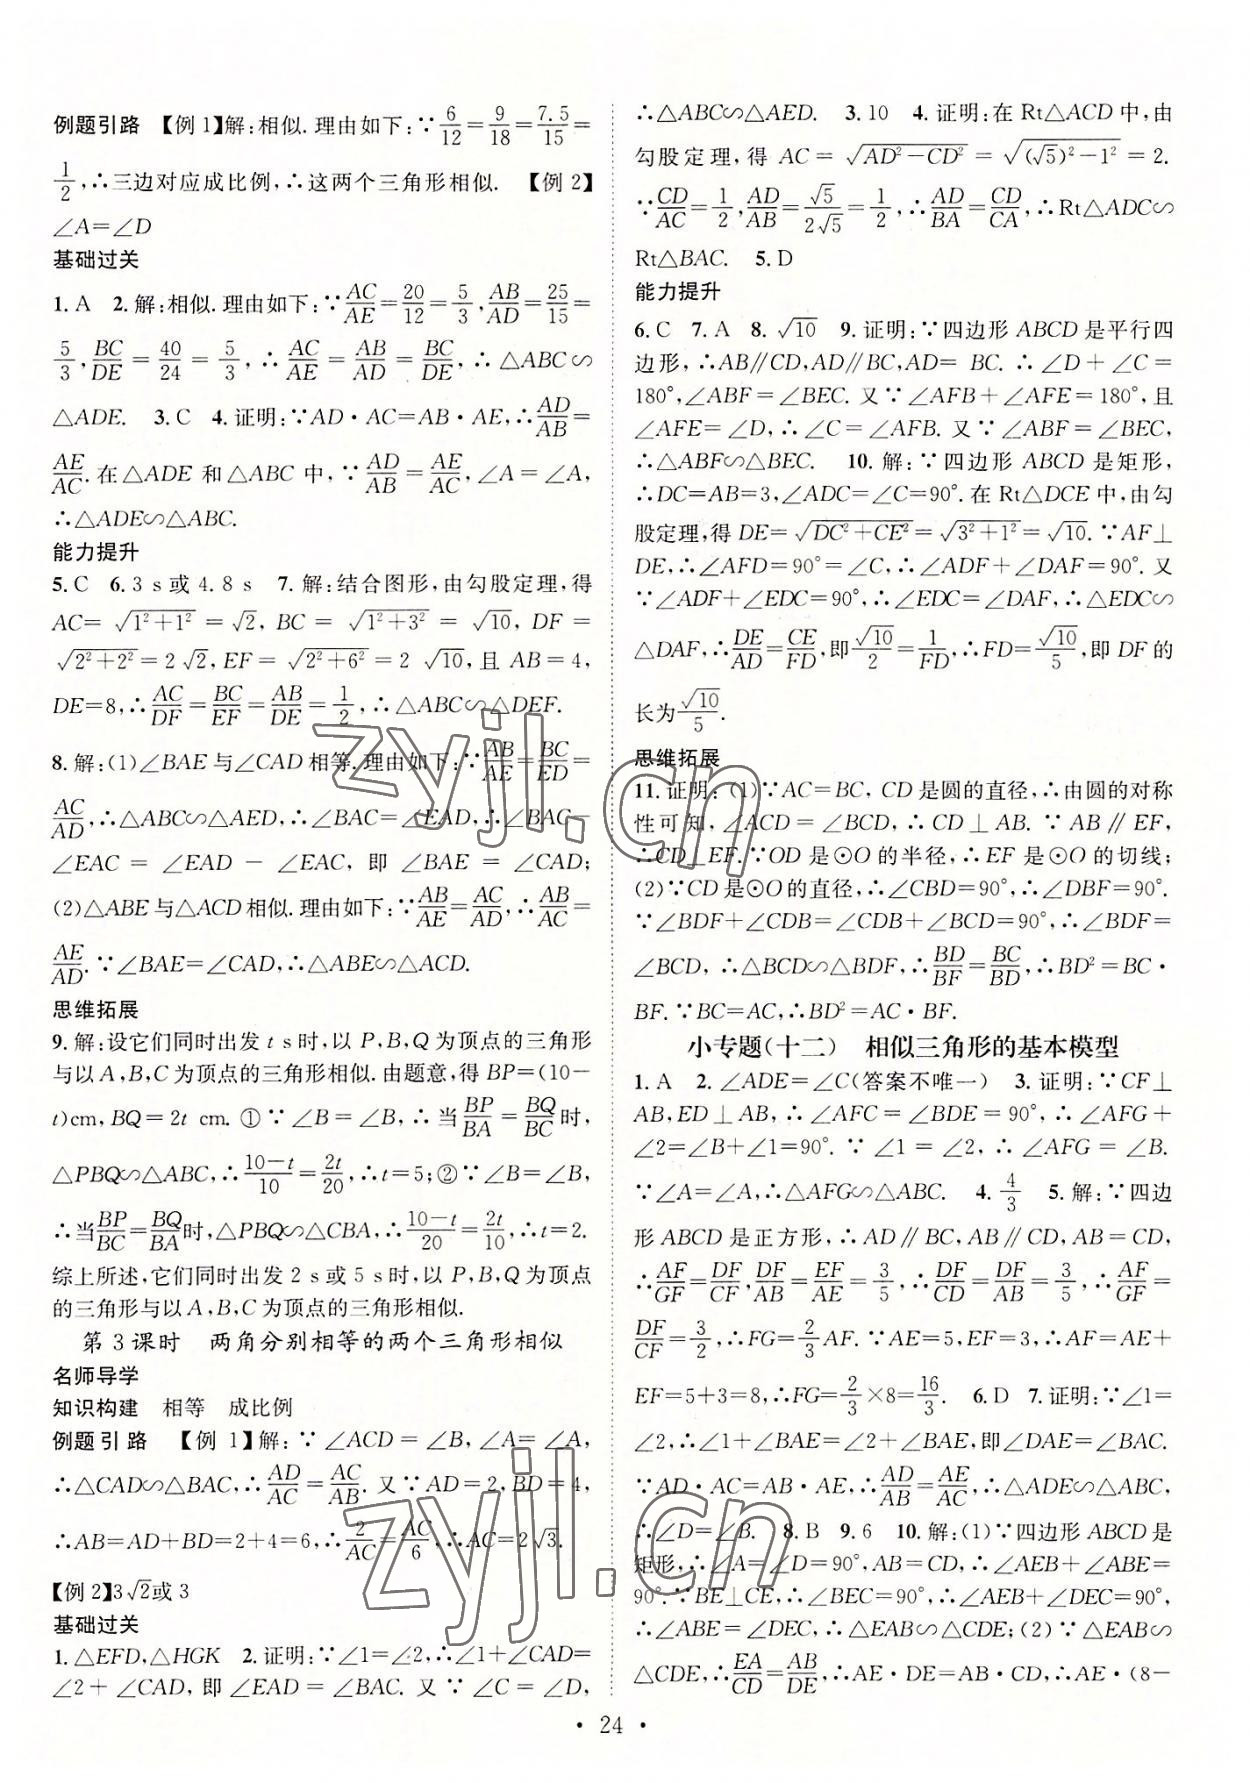 例题引路 【例1】解:相似.理由如下:∵6/12=9/18=7.5/15=
1/2,∴三边对应成比例,∴这两个三角形相似. 【例2】
∠A=∠D
基础过关
1. A 2. 解:相似.理由如下:∵AC/AE=20/12=5/3,AB/AD=25/15=
5/3,BC/DE=40/24=5/3,∴AC/AE=AB/AD=BC/DE,∴△ABC∽
△ADE. 3. C 4. 证明:∵AD·AC=AB·AE,∴AD/AB=
AE/AC.在△ADE和△ABC中,∵AD/AB=AE/AC,∠A=∠A,
∴△ADE∽△ABC.
能力提升
5. C 6. 3 s或4.8 s 7. 解:结合图形,由勾股定理,得
AC=√(1²+1²)=√2,BC=√(1²+3²)=√10,DF=
√(2²+2²)=2√2,EF=√(2²+6²)=2√10,且AB=4,
DE=8,∴AC/DF=BC/EF=AB/DE=1/2,∴△ABC∽△DEF.
8. 解:(1)∠BAE与∠CAD相等.理由如下:∵AB/AE=BC/ED=
AC/AD,∴△ABC∽△AED,∴∠BAC=∠EAD,∴∠BAC-
∠EAC=∠EAD-∠EAC,即∠BAE=∠CAD;
(2)△ABE与△ACD相似.理由如下:∵AB/AE=AC/AD,∴AB/AC=
AE/AD.∵∠BAE=∠CAD,∴△ABE∽△ACD.
思维拓展
9. 解:设它们同时出发t s时,以P,B,Q为顶点的三角形
与以A,B,C为顶点的三角形相似.由题意,得BP=(10-
t)cm,BQ=2t cm.①∵∠B=∠B,∴当BP/BA=BQ/BC时,
△PBQ∽△ABC,∴(10-t)/10=2t/20,∴t=5;②∵∠B=∠B,
∴当BP/BC=BQ/BA时,△PBQ∽△CBA,∴(10-t)/20=2t/10,∴t=2.
综上所述,它们同时出发2 s或5 s时,以P,B,Q为顶点
的三角形与以A,B,C为顶点的三角形相似.
第3课时 两角分别相等的两个三角形相似
名师导学
知识构建 相等 成比例
例题引路 【例1】解:∵∠ACD=∠B,∠A=∠A,
∴△CAD∽△BAC,∴AD/AC=AC/AB.又∵AD=2,BD=4,
∴AB=AD+BD=2+4=6,∴2/AC=AC/6,∴AC=2√3.
【例2】3√2或3
基础过关
1. △EFD,△HGK 2. 证明:∵∠1=∠2,∴∠1+∠CAD=
∠2+∠CAD,即∠EAD=∠BAC.又∵∠C=∠D,
∴△ABC∽△AED. 3. 10 4. 证明:在Rt△ACD中,由
勾股定理,得AC=√(AD²-CD²)=√((√5)²-1²)=2.
∵CD/AC=1/2,AD/AB=√5/2√5=1/2,∴AD/BA=CD/CA,∴Rt△ADC∽
Rt△BAC. 5. D
能力提升
6. C 7. A 8. √10 9. 证明:∵四边形ABCD是平行四
边形,∴AB∥CD,AD∥BC,AD=BC.∴∠D+∠C=
180°,∠ABF=∠BEC.又∵∠AFB+∠AFE=180°,且
∠AFE=∠D,∴∠C=∠AFB.又∵∠ABF=∠BEC,
∴△ABF∽△BEC. 10. 解:∵四边形ABCD是矩形,
∴DC=AB=3,∠ADC=∠C=90°.在Rt△DCE中,由勾
股定理,得DE=√(DC²+CE²)=√(3²+1²)=√10.∵AF⊥
DE,∴∠AFD=90°=∠C,∴∠ADF+∠DAF=90°.又
∵∠ADF+∠EDC=90°,∴∠EDC=∠DAF,∴△EDC∽
△DAF,∴DE/AD=CE/FD,即√10/2=1/FD,∴FD=√10/5,即DF的
长为√10/5.
思维拓展
11. 证明:(1)∵AC=BC,CD是圆的直径,∴由圆的对称
性可知,∠ACD=∠BCD,∴CD⊥AB.∵AB∥EF,
∴CD⊥EF.∵OD是⊙O的半径,∴EF是⊙O的切线;
(2)∵CD是⊙O的直径,∴∠CBD=90°,∴∠DBF=90°.
∵∠BDF+∠CDB=∠CDB+∠BCD=90°,∴∠BDF=
∠BCD,∴△BCD∽△BDF,∴BD/BF=BC/BD,∴BD²=BC·
BF.∵BC=AC,∴BD²=AC·BF.
小专题(十二) 相似三角形的基本模型
1. A 2. ∠ADE=∠C(答案不唯一) 3. 证明:∵CF⊥
AB,ED⊥AB,∴∠AFC=∠BDE=90°,∴∠AFG+
∠2=∠B+∠1=90°.∵∠1=∠2,∴∠AFG=∠B.
∵∠A=∠A,∴△AFG∽△ABC. 4. 4/3 5. 解:∵四边
形ABCD是正方形,∴AD∥BC,AB∥CD,AB=CD,
∴AF/GF=DF/CF,DF/AB=EF/AE=3/5,∴DF/CD=DF/AB=3/5,∴AF/GF=
DF/CF=3/2,∴FG=2/3AF.∵AE=5,EF=3,∴AF=AE+
EF=5+3=8,∴FG=2/3×8=16/3. 6. D 7. 证明:∵∠1=
∠2,∴∠1+∠BAE=∠2+∠BAE,即∠DAE=∠BAC.
∵AD·AC=AB·AE,∴AD/AB=AE/AC,∴△ADE∽△ABC,
∴∠D=∠B. 8. B 9. 6 10. 解:(1)∵四边形ABCD是
矩形,∴∠A=∠D=90°,AB=CD,∴∠AEB+∠ABE=
90°.∵BE⊥CE,∴∠BEC=90°,∴∠AEB+∠DEC=90°,
∴∠ABE=∠DEC,∴△EAB∽△CDE;(2)∵△EAB∽
△CDE,∴EA/CD=AB/DE,∴AE·DE=AB·CD,∴AE·(8-
·24·
zyjl.cn
zyjl.cn